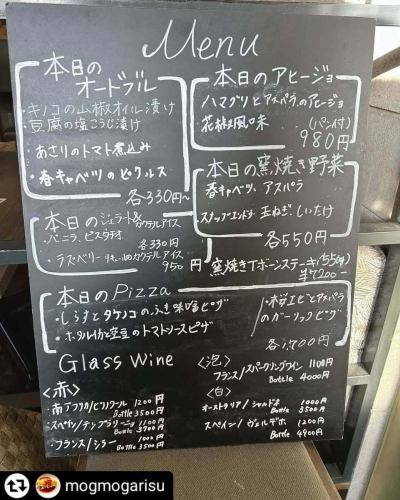 Menu
本日の
オードブル
・キノコの山椒オイル漬け
・豆腐の塩こうじ漬け
・あさりのトマト煮込み
・春キャベツのピクルス
各330円~
本日のアヒージョ
ハマグリとアスパラのアヒージョ
花椒風味
(パン付)
980円
本日の窯焼き野菜
春キャベツ、アスパラ
スナップエンドウ 玉ねぎ、しいたけ
各550円
本日のジェラート&
カクテルアイス
・バニラ、ピスタチオ
各330円
・ラズベリー カクテルアイス
950円
窯焼きTボーンステーキ(550g)
¥7200-
本日のPizza
・しらすとタケノコのふき味噌ピザ
・ホタルイカと空豆のトマトソースピザ
桜エビとアスパラ
のガーリックピザ
各1,700円
Glass Wine
<赤>
南アフリカ/ピノノワール 1200円
Bottle 3500円
スペイン/テンプラニーリョ 1100円
Bottle 3700円
フランス/シラー 1000円
Bottle 3500円
<泡>
フランス/スパークリングワイン 1100円
Bottle 4000円
<白>
オーストラリア/シャルドネ 1000円
Bottle 3500円
スペイン/ヴェルデホ 1200円
Bottle 4900円
mogmogarisu